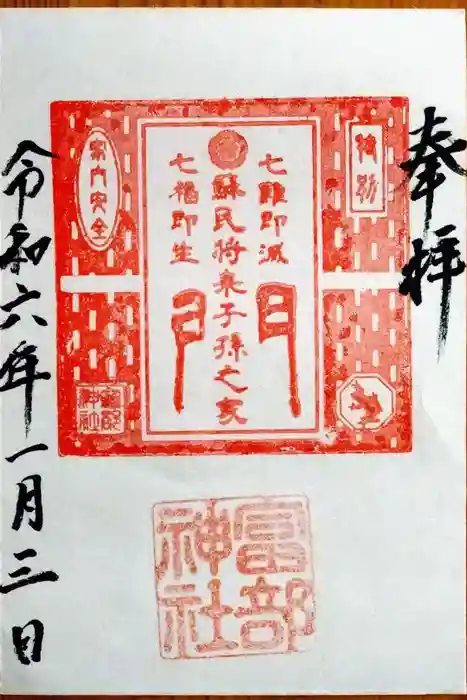 奉拝
特別
七難即滅
蘇民将来子孫之家
七福即生
家内安全
富部
神社
令和六年一月三日